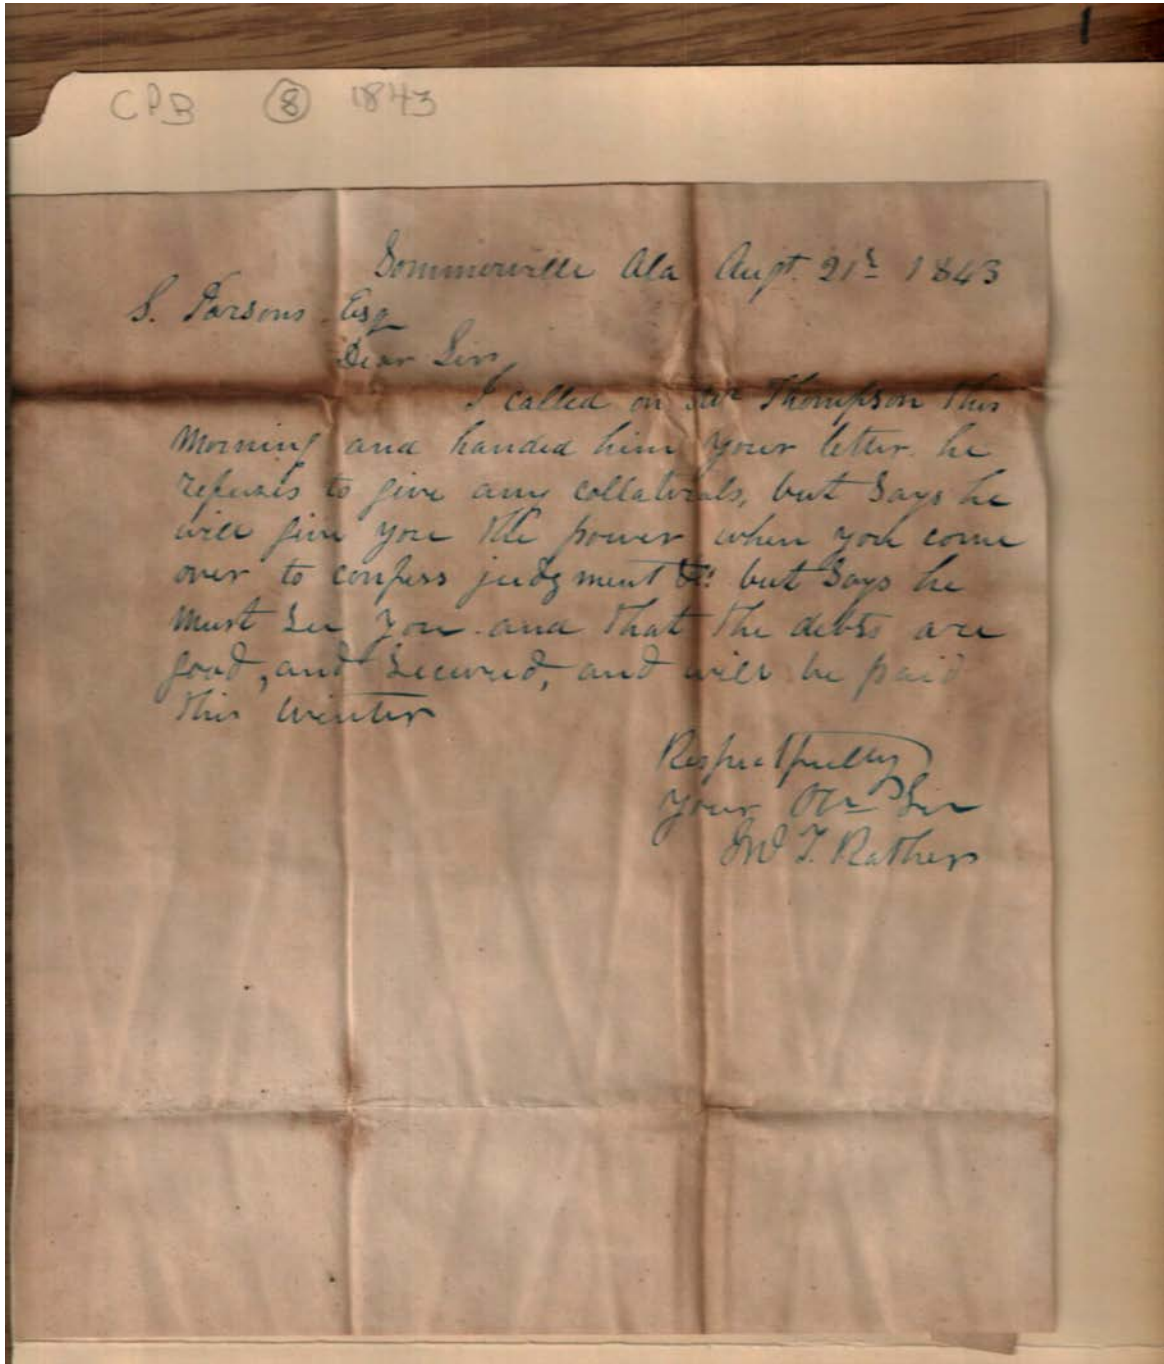 1
CPB 8 1843
Sommerville Ala Augt. 21st 1843
S. Parsons Esq
Dear Sir,
I called on Mr Thompson this
morning and handed him your letter. he
refuses to give any collaterals, but says he
will give you the power when you come
over to confess judgment &c. but says he
must see you and that the debts are
good, and secured, and will be paid
this winter
Respectfully
your Obt Ser
Jno T. Rather